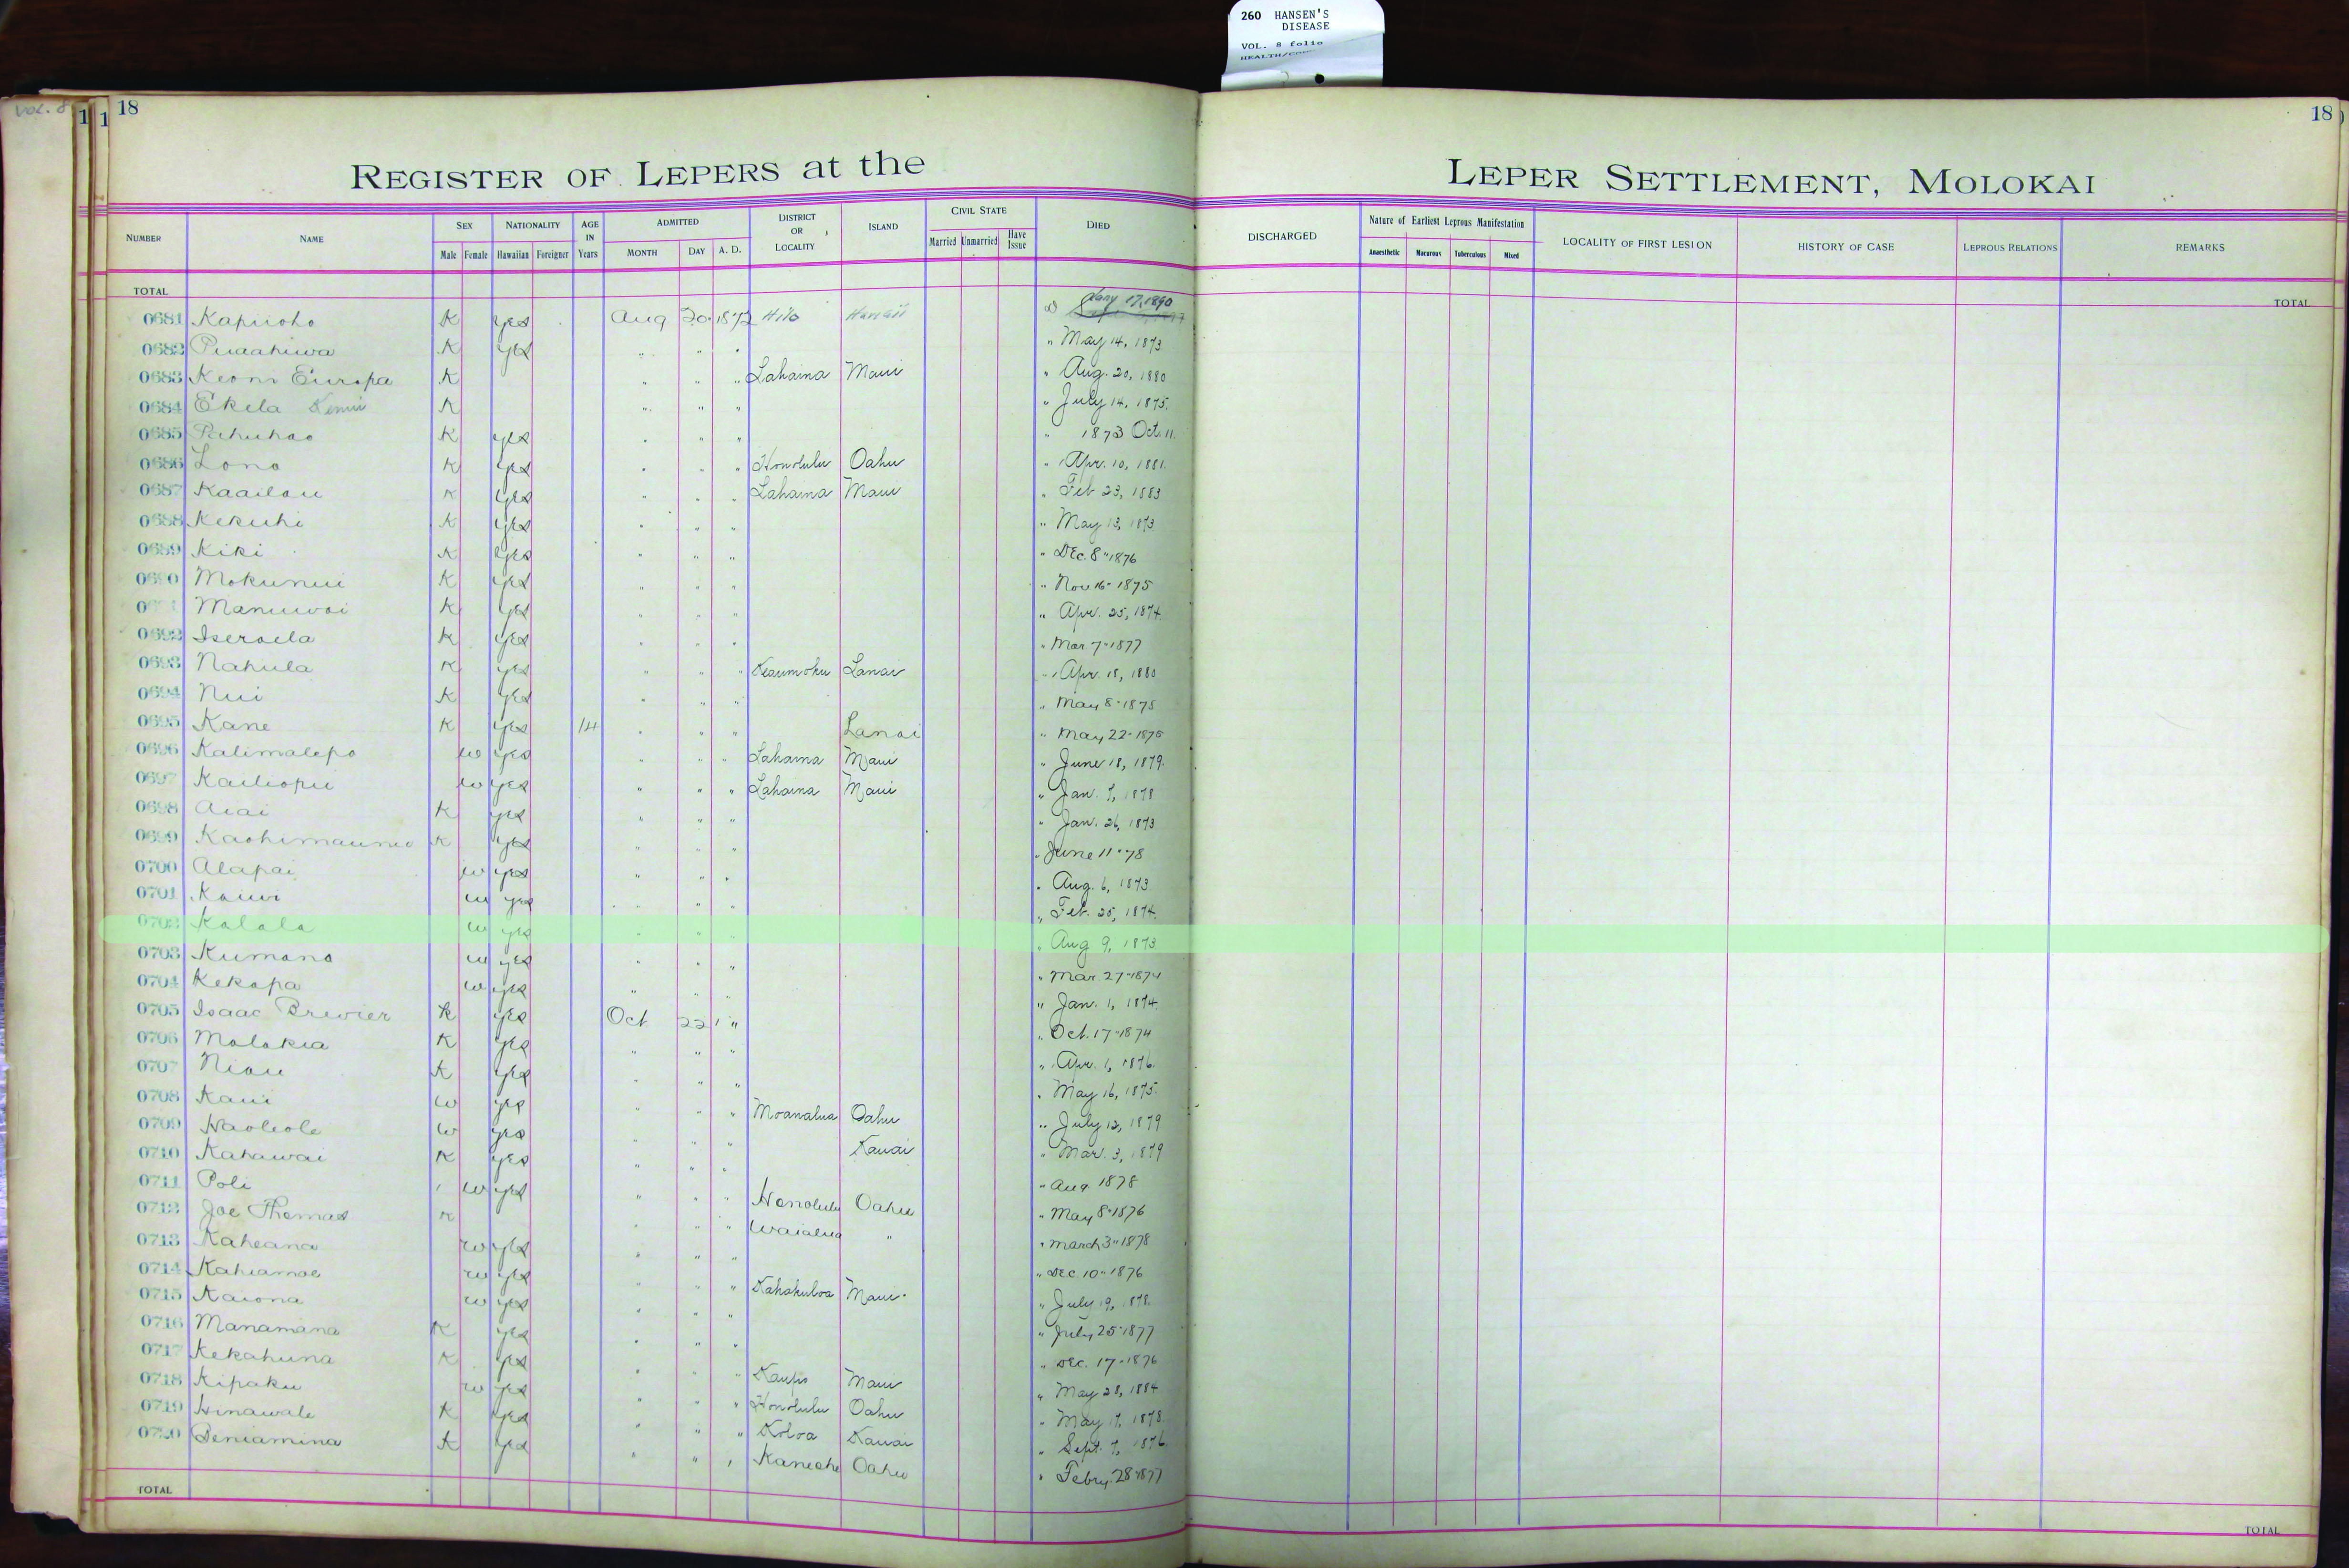 260 HANSEN'S
DISEASE
VOL. 8 folio
VOL. 8
18
18
REGISTER OF LEPERS at the LEPER SETTLEMENT, MOLOKAI
NUMBER NAME SEX Male Female NATIONALITY Hawaiian Foreigner AGE IN Years ADMITTED MONTH DAY A. D. DISTRICT OR LOCALITY ISLAND CIVIL STATE Married Unmarried Have Issue DIED DISCHARGED Nature of Earliest Leprous Manifestation Anaesthetic Macurous Tuberculous Mixed LOCALITY OF FIRST LESION HISTORY OF CASE LEPROUS RELATIONS REMARKS
TOTAL TOTAL
0681 Kapiioho K yes Aug 20 1872 Hilo Hawaii Jany 17, 1890
0682 Puaahiwa K yes " " " " May 14, 1873
0683 Keoni Europa K " " " Lahaina Maui " Aug. 20, 1880
0684 Ekela K " " " " July 14, 1875.
0685 Pahuhao K yes " " " " 1873 Oct. 11.
0686 Lono K yes " " " Honolulu Oahu " Apr. 10, 1881.
0687 Kaailau K yes " " " Lahaina Maui " Feb 23, 1883
0688 Kekuhi K yes " " " " May 13, 1873
0689 Kiki K yes " " " " Dec. 8 " 1876
0690 Mokunui K yes " " " " Nov 16 - 1875
Manuwai K yes " " " " Apr. 25, 1874.
0692 Iseraela K yes " " " " Mar 7 " 1877
0693 Nahula K yes " " " Keaumoku Lanai " Apr. 18, 1880
0694 Nui K yes " " " " May 8 " 1875
0695 Kane K yes 14 " " " Lanai " May 22 - 1875
0696 Kalimalepo w yes " " " Lahaina Maui " June 18, 1879.
0697 Kailiopu w yes " " " Lahaina Maui " Jan. 7, 1878
0698 Aiai K yes " " " " Jan. 26, 1873
0699 K yes " " " " June 11 " 78
0700 Alapai w yes " " " " Aug. 6, 1873
0701 Kauwi w yes " " " " Feb. 25, 1874.
0702 Kalala w yes " " " " Aug 9, 1873
0703 Kumano w yes " " " " Mar. 27 - 1874
0704 Kekapa w yes " " " " Jan. 1, 1874.
0705 Isaac Brewier K yes Oct 22 " " Oct. 17 - 1874
0706 Molokia K yes " " " " Apr. 1, 1876.
0707 Niau K yes " " " " May 16, 1875.
0708 Kaui w yes " " " Moanalua Oahu " July 12, 1879
0709 Haoleole w yes " " " Kauai " Mar. 3, 1879
0710 Kahawai K yes " " " " Aug 1878
0711 Poli w yes " " " Honolulu Oahu " May 8 " 1876
0712 Joe Thomas K " " " Waialua " " March 3 " 1878
0713 Kaheana w yes " " " " Dec 10 " 1876
0714 Kahiamoe w yes " " " Kahakuloa Maui " July 19, 1878.
0715 Kaiona w yes " " " " July 25 1877
0716 Manamana K yes " " " " Dec. 17 - 1876
0717 Kekahuna K yes " " " Kaupo Maui " May 28, 1884
0718 Kipaku w yes " " " Honolulu Oahu " May 17, 1878.
0719 Hinawale K yes " " " Koloa Kauai " Sept. 7, 1876.
0720 Beniamina K yes " " " Kaneohe Oahu " Febry 28 1877
TOTAL TOTAL